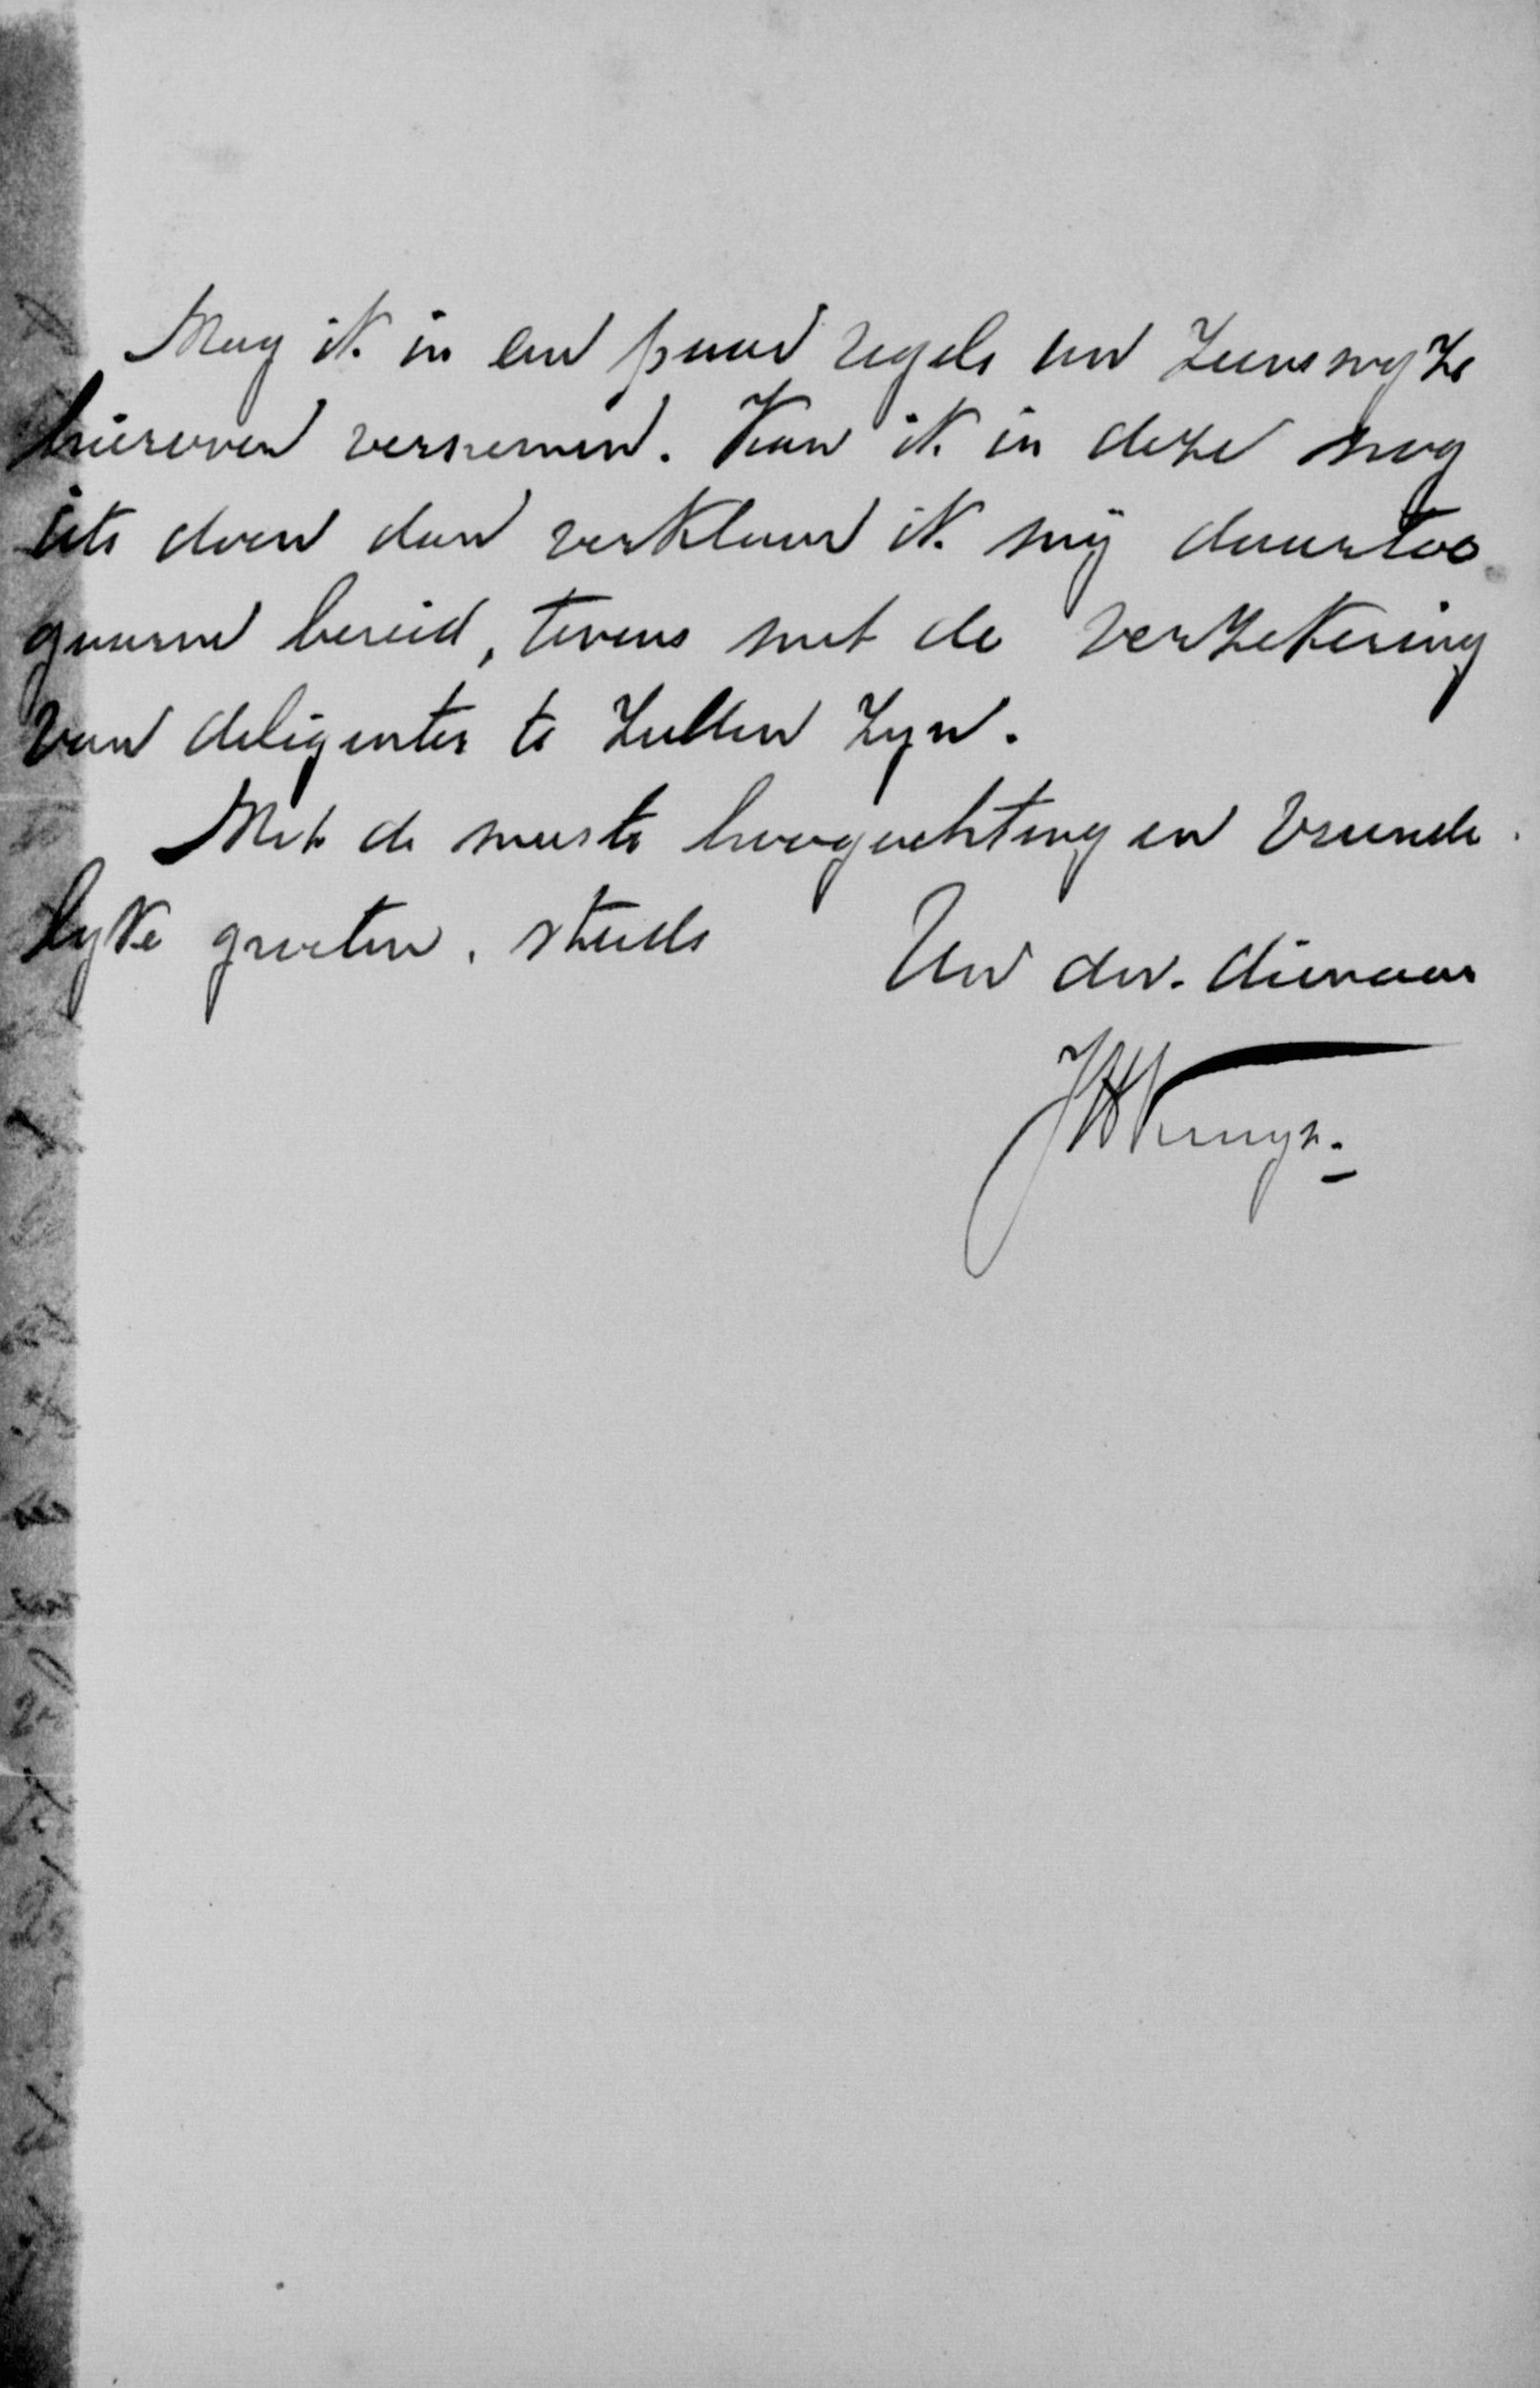 Mag ik in een paar regels uw zienswyze
hierover vernemen. Kan ik in deze nog
iets doen dan verklaar ik mij daartoe
gaarne bereid, tevens met de verzekering
van deligenter te zullen zyn.
Met de meeste hoogachting en vriende
lyke groeten, steeds
Uw dw. dienaar
JHKruys.